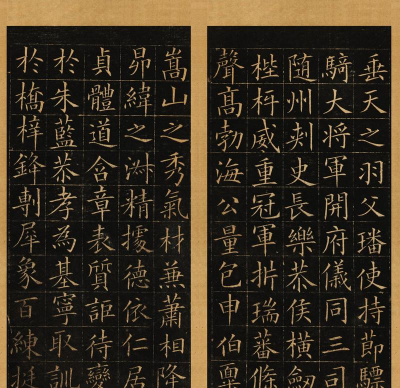 垂天之羽父璠使持節驃
騎大將軍開府儀同三司
隨州刾史長樂恭侯橫劒
梐枑威重冠軍折瑞蕃條
聲髙勃海公量包申伯稟
嵩山之秀氣材兼蕭相降
昴緯之淋精據德依仁居
貞體道含章表質詎待變
於朱藍恭孝為基寧取訓
於橋梓鋒剸犀象百練挺